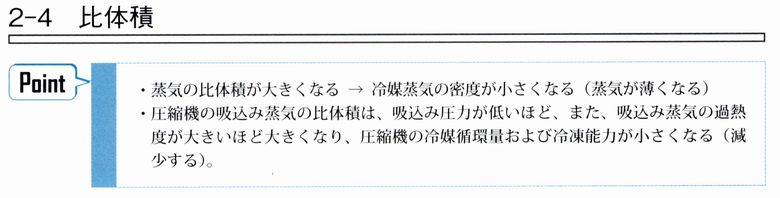 2-4　比体積
Point
・蒸気の比体積が大きくなる → 冷媒蒸気の密度が小さくなる（蒸気が薄くなる）
・圧縮機の吸込み蒸気の比体積は、吸込み圧力が低いほど、また、吸込み蒸気の過熱
度が大きいほど大きくなり、圧縮機の冷媒循環量および冷凍能力が小さくなる（減
少する）。